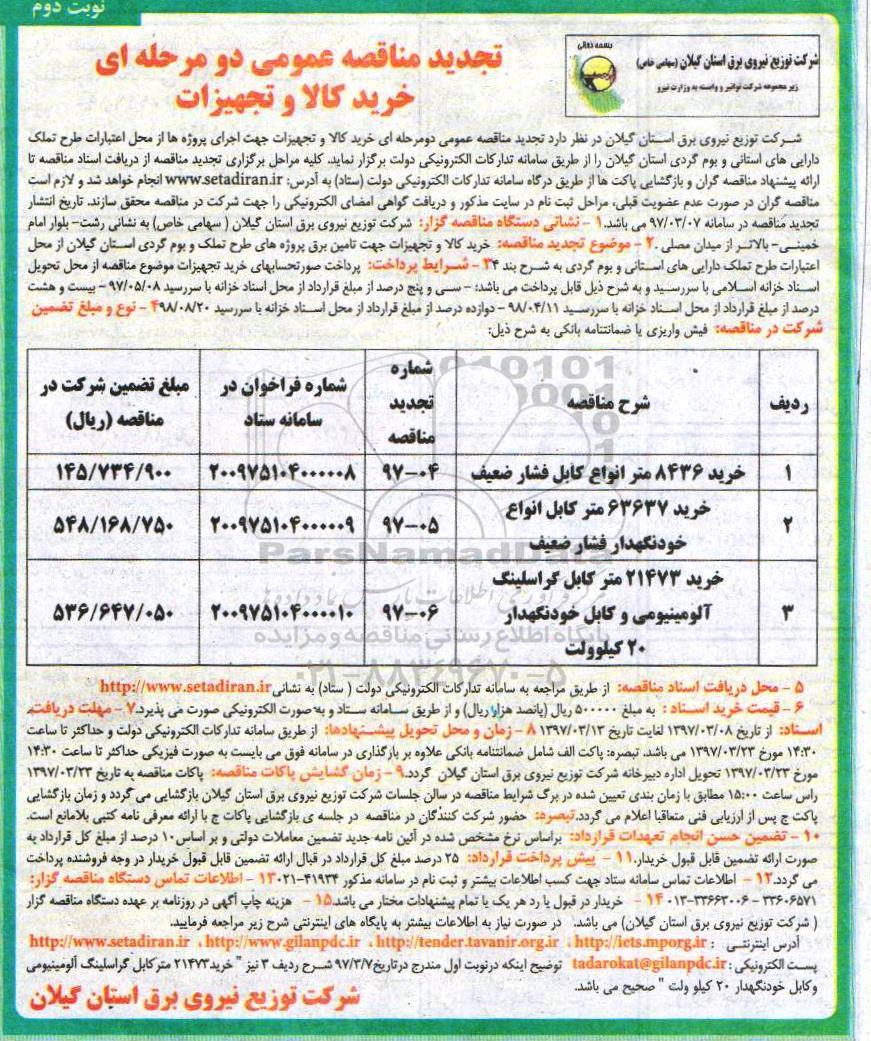 نوبت دوم
بسمه تعالی
شرکت توزیع نیروی برق استان گیلان (سهامی خاص)
زیر مجموعه شرکت توانیر و وابسته به وزارت نیرو
تجدید مناقصه عمومی دو مرحله ای
خرید کالا و تجهیزات
شرکت توزیع نیروی برق استان گیلان در نظر دارد تجدید مناقصه عمومی دومرحله ای خرید کالا و تجهیزات جهت اجرای پروژه ها از محل اعتبارات طرح تملک
دارایی های استانی و بوم گردی استان گیلان را از طریق سامانه تدارکات الکترونیکی دولت برگزار نماید. کلیه مراحل برگزاری تجدید مناقصه از دریافت اسناد مناقصه تا
ارائه پیشنهاد مناقصه گران و بازگشایی پاکت ها از طریق درگاه سامانه تدارکات الکترونیکی دولت (ستاد) به آدرس: www.setadiran.ir انجام خواهد شد و لازم است
مناقصه گران در صورت عدم عضویت قبلی، مراحل ثبت نام در سایت مذکور و دریافت گواهی امضای الکترونیکی را جهت شرکت در مناقصه محقق سازند. تاریخ انتشار
تجدید مناقصه در سامانه ۹۷/۰۳/۰۷ می باشد. ۱ - نشانی دستگاه مناقصه گزار: شرکت توزیع نیروی برق استان گیلان ( سهامی خاص) به نشانی رشت- بلوار امام
خمینی- بالاتر از میدان مصلی . ۲ - موضوع تجدید مناقصه: خرید کالا و تجهیزات جهت تامین برق پروژه های طرح تملک و بوم گردی استان گیلان از محل
اعتبارات طرح تملک دارایی های استانی و بوم گردی به شرح بند ۴ ۳ - شرایط پرداخت: پرداخت صورتحسابهای خرید تجهیزات موضوع مناقصه از محل تحویل
اسناد خزانه اسلامی با سررسید و به شرح ذیل قابل پرداخت می باشد: - سی و پنج درصد از مبلغ قرارداد از محل اسناد خزانه با سررسید ۹۷/۰۵/۰۸ - بیست و هشت
درصد از مبلغ قرارداد از محل اسناد خزانه با سررسید ۹۸/۰۴/۱۱ - دوازده درصد از مبلغ قرارداد از محل اسناد خزانه با سررسید ۹۸/۰۸/۲۰ ۴ - نوع و مبلغ تضمین
شرکت در مناقصه: فیش واریزی یا ضمانتنامه بانکی به شرح ذیل:
ردیف شرح مناقصه شماره تجدید مناقصه شماره فراخوان در سامانه ستاد مبلغ تضمین شرکت در مناقصه (ریال)
۱ خرید ۸۴۳۶ متر انواع کابل فشار ضعیف ۹۷-۰۴ ۲۰۰۹۷۵۱۰۴۰۰۰۰۰۸ ۱۴۵/۷۳۴/۹۰۰
۲ خرید ۶۳۶۳۷ متر کابل انواع خودنگهدار فشار ضعیف ۹۷-۰۵ ۲۰۰۹۷۵۱۰۴۰۰۰۰۰۹ ۵۴۸/۱۶۸/۷۵۰
۳ خرید ۲۱۴۷۳ متر کابل گراسلینگ آلومینیومی و کابل خودنگهدار ۲۰ کیلوولت ۹۷-۰۶ ۲۰۰۹۷۵۱۰۴۰۰۰۰۱۰ ۵۳۶/۶۴۷/۰۵۰
ParsNamadData
پایگاه اطلاع رسانی مناقصه و مزایده
۰۲۱-۸۸۳۴۹۶۷۰-۵
۵ - محل دریافت اسناد مناقصه: از طریق مراجعه به سامانه تدارکات الکترونیکی دولت ( ستاد) به نشانی http://www.setadiran.ir
۶ - قیمت خرید اسناد : به مبلغ ۵۰۰۰۰۰ ریال (پانصد هزار ریال) و از طریق سامانه ستاد و به صورت الکترونیکی صورت می پذیرد. ۷ - مهلت دریافت
اسناد: از تاریخ ۱۳۹۷/۰۳/۰۸ لغایت تاریخ ۱۳۹۷/۰۳/۱۳ ۸ - زمان و محل تحویل پیشنهادها: از طریق سامانه تدارکات الکترونیکی دولت و حداکثر تا ساعت
۱۴:۳۰ مورخ ۱۳۹۷/۰۳/۲۳ می باشد. تبصره: پاکت الف شامل ضمانتنامه بانکی علاوه بر بارگذاری در سامانه فوق می بایست به صورت فیزیکی حداکثر تا ساعت ۱۴:۳۰
مورخ ۱۳۹۷/۰۳/۲۳ تحویل اداره دبیرخانه شرکت توزیع نیروی برق استان گیلان گردد. ۹ - زمان گشایش پاکات مناقصه: پاکات مناقصه به تاریخ ۱۳۹۷/۰۳/۲۳
راس ساعت ۱۵:۰۰ مطابق با زمان بندی تعیین شده در برگ شرایط مناقصه در سالن جلسات شرکت توزیع نیروی برق استان گیلان بازگشایی می گردد و زمان بازگشایی
پاکت ج پس از ارزیابی فنی متعاقبا اعلام می گردد. تبصره: حضور شرکت کنندگان در مناقصه در جلسه ی بازگشایی پاکات ج با ارائه معرفی نامه کتبی بلامانع است.
۱۰ - تضمین حسن انجام تعهدات قرارداد: براساس نرخ مشخص شده در آئین نامه جدید تضمین معاملات دولتی و بر اساس ۱۰ درصد از مبلغ کل قرارداد به
صورت ارائه تضمین قابل قبول خریدار. ۱۱ - پیش پرداخت قرارداد: ۲۵ درصد مبلغ کل قرارداد در قبال ارائه تضمین قابل قبول خریدار در وجه فروشنده پرداخت
می گردد. ۱۲ - اطلاعات تماس سامانه ستاد جهت کسب اطلاعات بیشتر و ثبت نام در سامانه مذکور ۴۱۹۳۴-۰۲۱ ۱۳ - اطلاعات تماس دستگاه مناقصه گزار:
۳۳۶۰۶۵۷۱ - ۳۳۶۶۳۰۰۶-۰۱۳ ۱۴ - خریدار در قبول یا رد هر یک یا تمام پیشنهادات مختار می باشد. ۱۵ - هزینه چاپ آگهی در روزنامه بر عهده دستگاه مناقصه گزار
( شرکت توزیع نیروی برق استان گیلان) می باشد. در صورت نیاز به اطلاعات بیشتر به پایگاه های اینترنتی شرح زیر مراجعه فرمایید.
آدرس اینترنتی : http://iets.mporg.ir ، http://tender.tavanir.org.ir ، http://www.gilanpdc.ir ، http://www.setadiran.ir
پست الکترونیکی : tadarokat@gilanpdc.ir توضیح اینکه درنوبت اول مندرج درتاریخ ۹۷/۳/۷ شرح ردیف ۳ نیز " خرید ۲۱۴۷۳ متر کابل گراسلینگ آلومینیومی
وکابل خودنگهدار ۲۰ کیلو ولت " صحیح می باشد.
شرکت توزیع نیروی برق استان گیلان